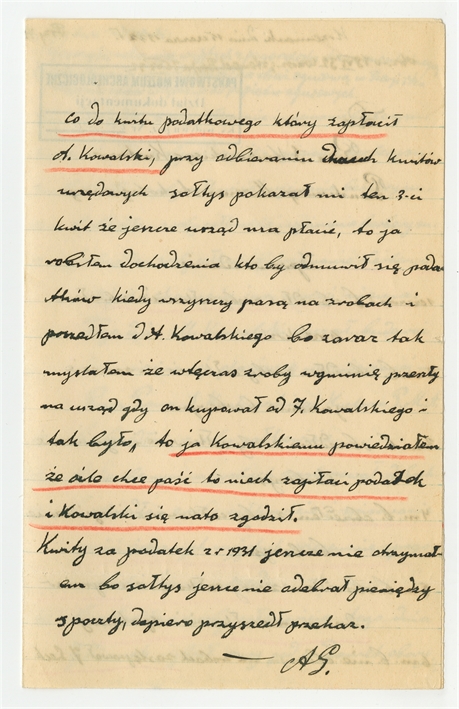 co do kwitu podatkowego ktory zapłacił
A. Kowalski, przy odbieraniu dwuch kwitów
urzędowych sołtys pokazał mi ten 3-ci
kwit że jeszcze urząd ma płacić, to ja
robiłem dochodzenia kto by odmuwił się poda-
tków kiedy wszyszcy pasą na zrobach i
poszedłem d. A. Kowalskiego bo zaraz tak
myślałem że wtęczas zroby w gminię przeszły
na urząd gdy on kupował od J. Kowalskiego i
tak było, to ja Kowalskiemu powiedziałem
że chce paść to niech zapłaci podatek
i Kowalski się nato zgodził.
Kwity za podatek z r 1931 jeszcze nie otrzymał-
em bo sołtys jescze nie odebrał pieniędzy
s poczty, dopiero przyszedł przekaz.
— A G.